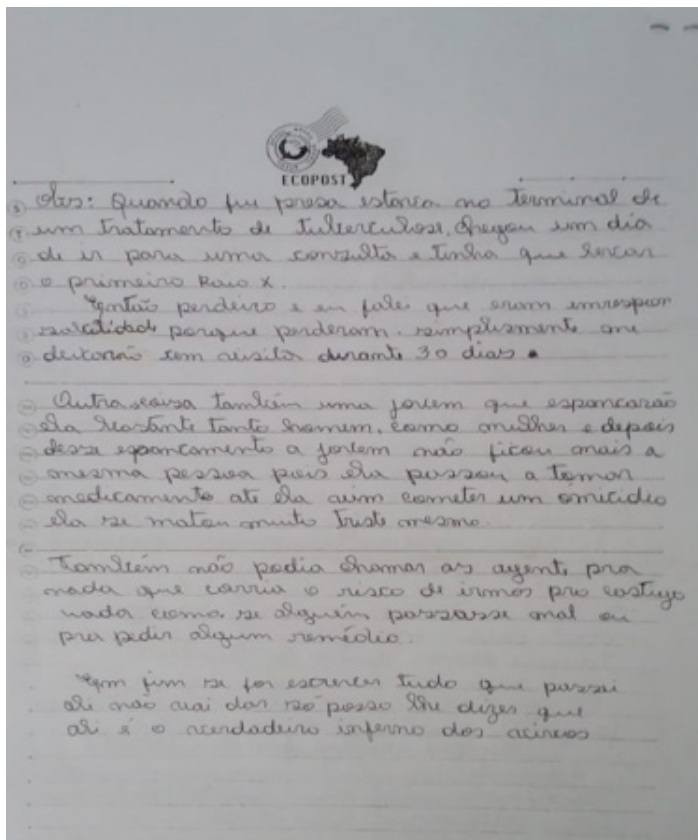 ECOPOST
Obs: Quando fui presa estava no Terminal de
um tratamento de Tuberculose, chegou um dia
de ir para uma consulta e tinha que levar
o primeiro Raio X.
Então perdeiro e eu falei que eram
porque perderam. simplismente me
deixarão sem visita durante 30 dias.
Outra coisa também uma jovem que espancarão
ela bastante tanto homem, como mulher e depois
desse espancamento a jovem não ficou mais a
mesma pessoa pois ela passou a tomar
medicamento até ela assim cometer um omicidio
ela se matou muito triste mesmo.
Também não podia chamar as agente pra
nada que corria o risco de irmos pro castigo
nada como, se alguém passasse mal ou
pra pedir algum remédio.
Em fim se for escrever tudo que passei
ali não vai dar só posso lhe dizer que
ali é o verdadeiro inferno dos vivos